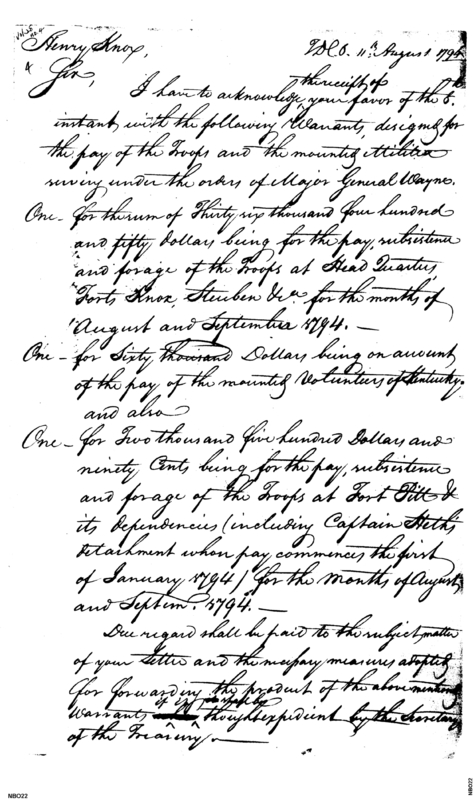 Henry Knox,
T.D.O. 11th August 1794
Sir,
the receipt of
I have to acknowledge your favor of the 8th
instant with the following Warrants, designed for
the pay of the Troops and the mounted Militia
serving under the orders of Major General Wayne.
One - for the sum of Thirty six thousand four hundred
and fifty dollars being for the pay, subsistence
and forage of the Troops at Head Quarters,
Forts Knox, Steuben &ca. for the months of
August and September 1794. —
One - for Sixty thousand Dollars being on account
of the pay of the mounted Volunteers of Kentucky.
and also
One - for Two thousand five hundred Dollars and
ninety Cents being for the pay, subsistence
and forage of the Troops at Fort Pitt &
its dependencies (including Captain Heth's
detachment whose pay commences the first
of January 1794) for the months of August
and Septem. 1794. —
Due regard shall be paid to the subject matter
of your Letter and the necessary measures adopted
for forwarding the product of the above mentioned
Warrants thought expedient by the Secretary
of the Treasury. —
NB022
NB022